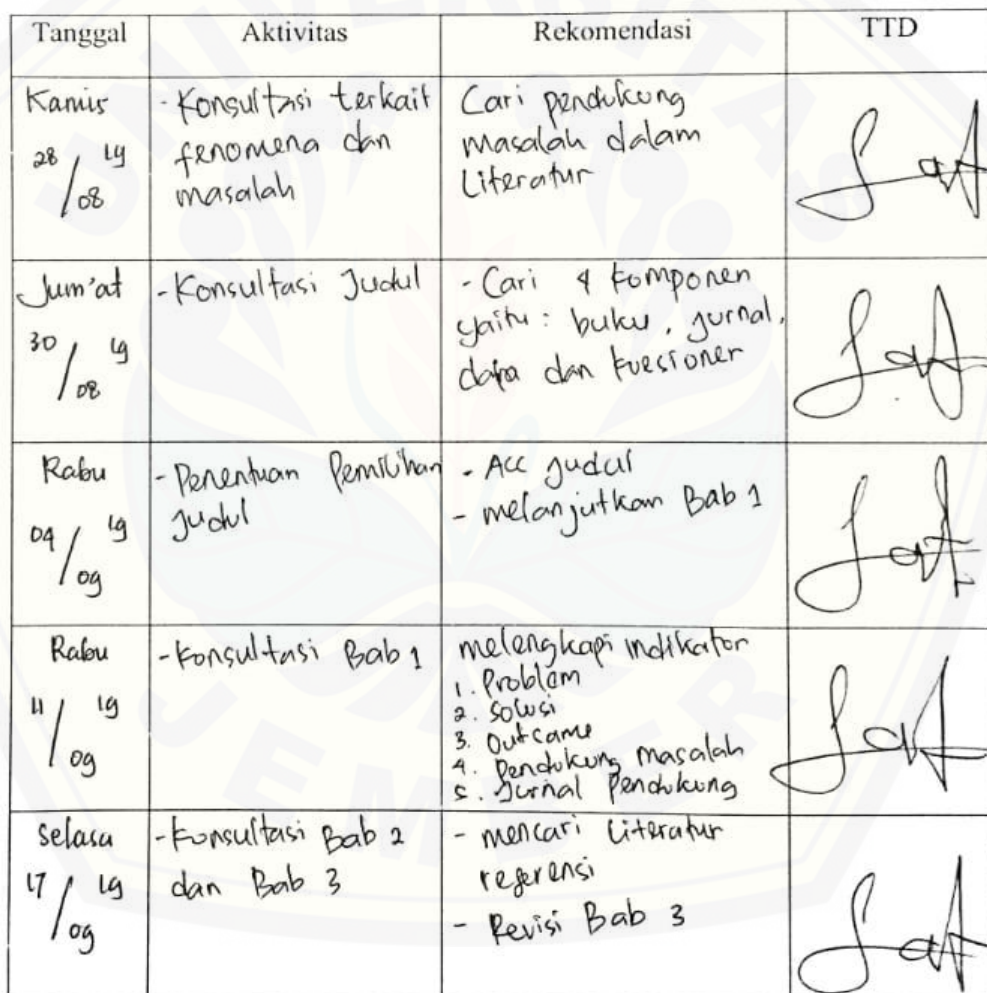 Tanggal Aktivitas Rekomendasi TTD
Kamis
28/08 19
- Konsultasi terkait
fenomena dan
masalah
Cari pendukung
masalah dalam
Literatur
Jum'at
30/08 19
- Konsultasi Judul
- Cari 4 komponen
yaitu: buku, jurnal,
data dan kuesioner
Rabu
04/09 19
- Penentuan Pemilihan
Judul
- Acc judul
- melanjutkan Bab 1
Rabu
11/09 19
- Konsultasi Bab 1
melengkapi indikator
1. Problem
2. Solusi
3. Outcame
4. Pendukung masalah
5. Jurnal Pendukung
Selasa
17/09 19
- Konsultasi Bab 2
dan Bab 3
- mencari literatur
referensi
- Revisi Bab 3
UNIVERSITAS
JEMBER